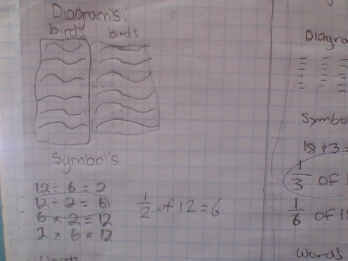 Diagram's:
birds birds
Symbol's
12 ÷ 6 = 2
12 ÷ 2 = 6
6 × 2 = 12
2 × 6 = 12
1/2 of 12 = 6
Diagra
Symbo
18 ÷ 3 =
1/3 of 1
1/6 of 1
Words